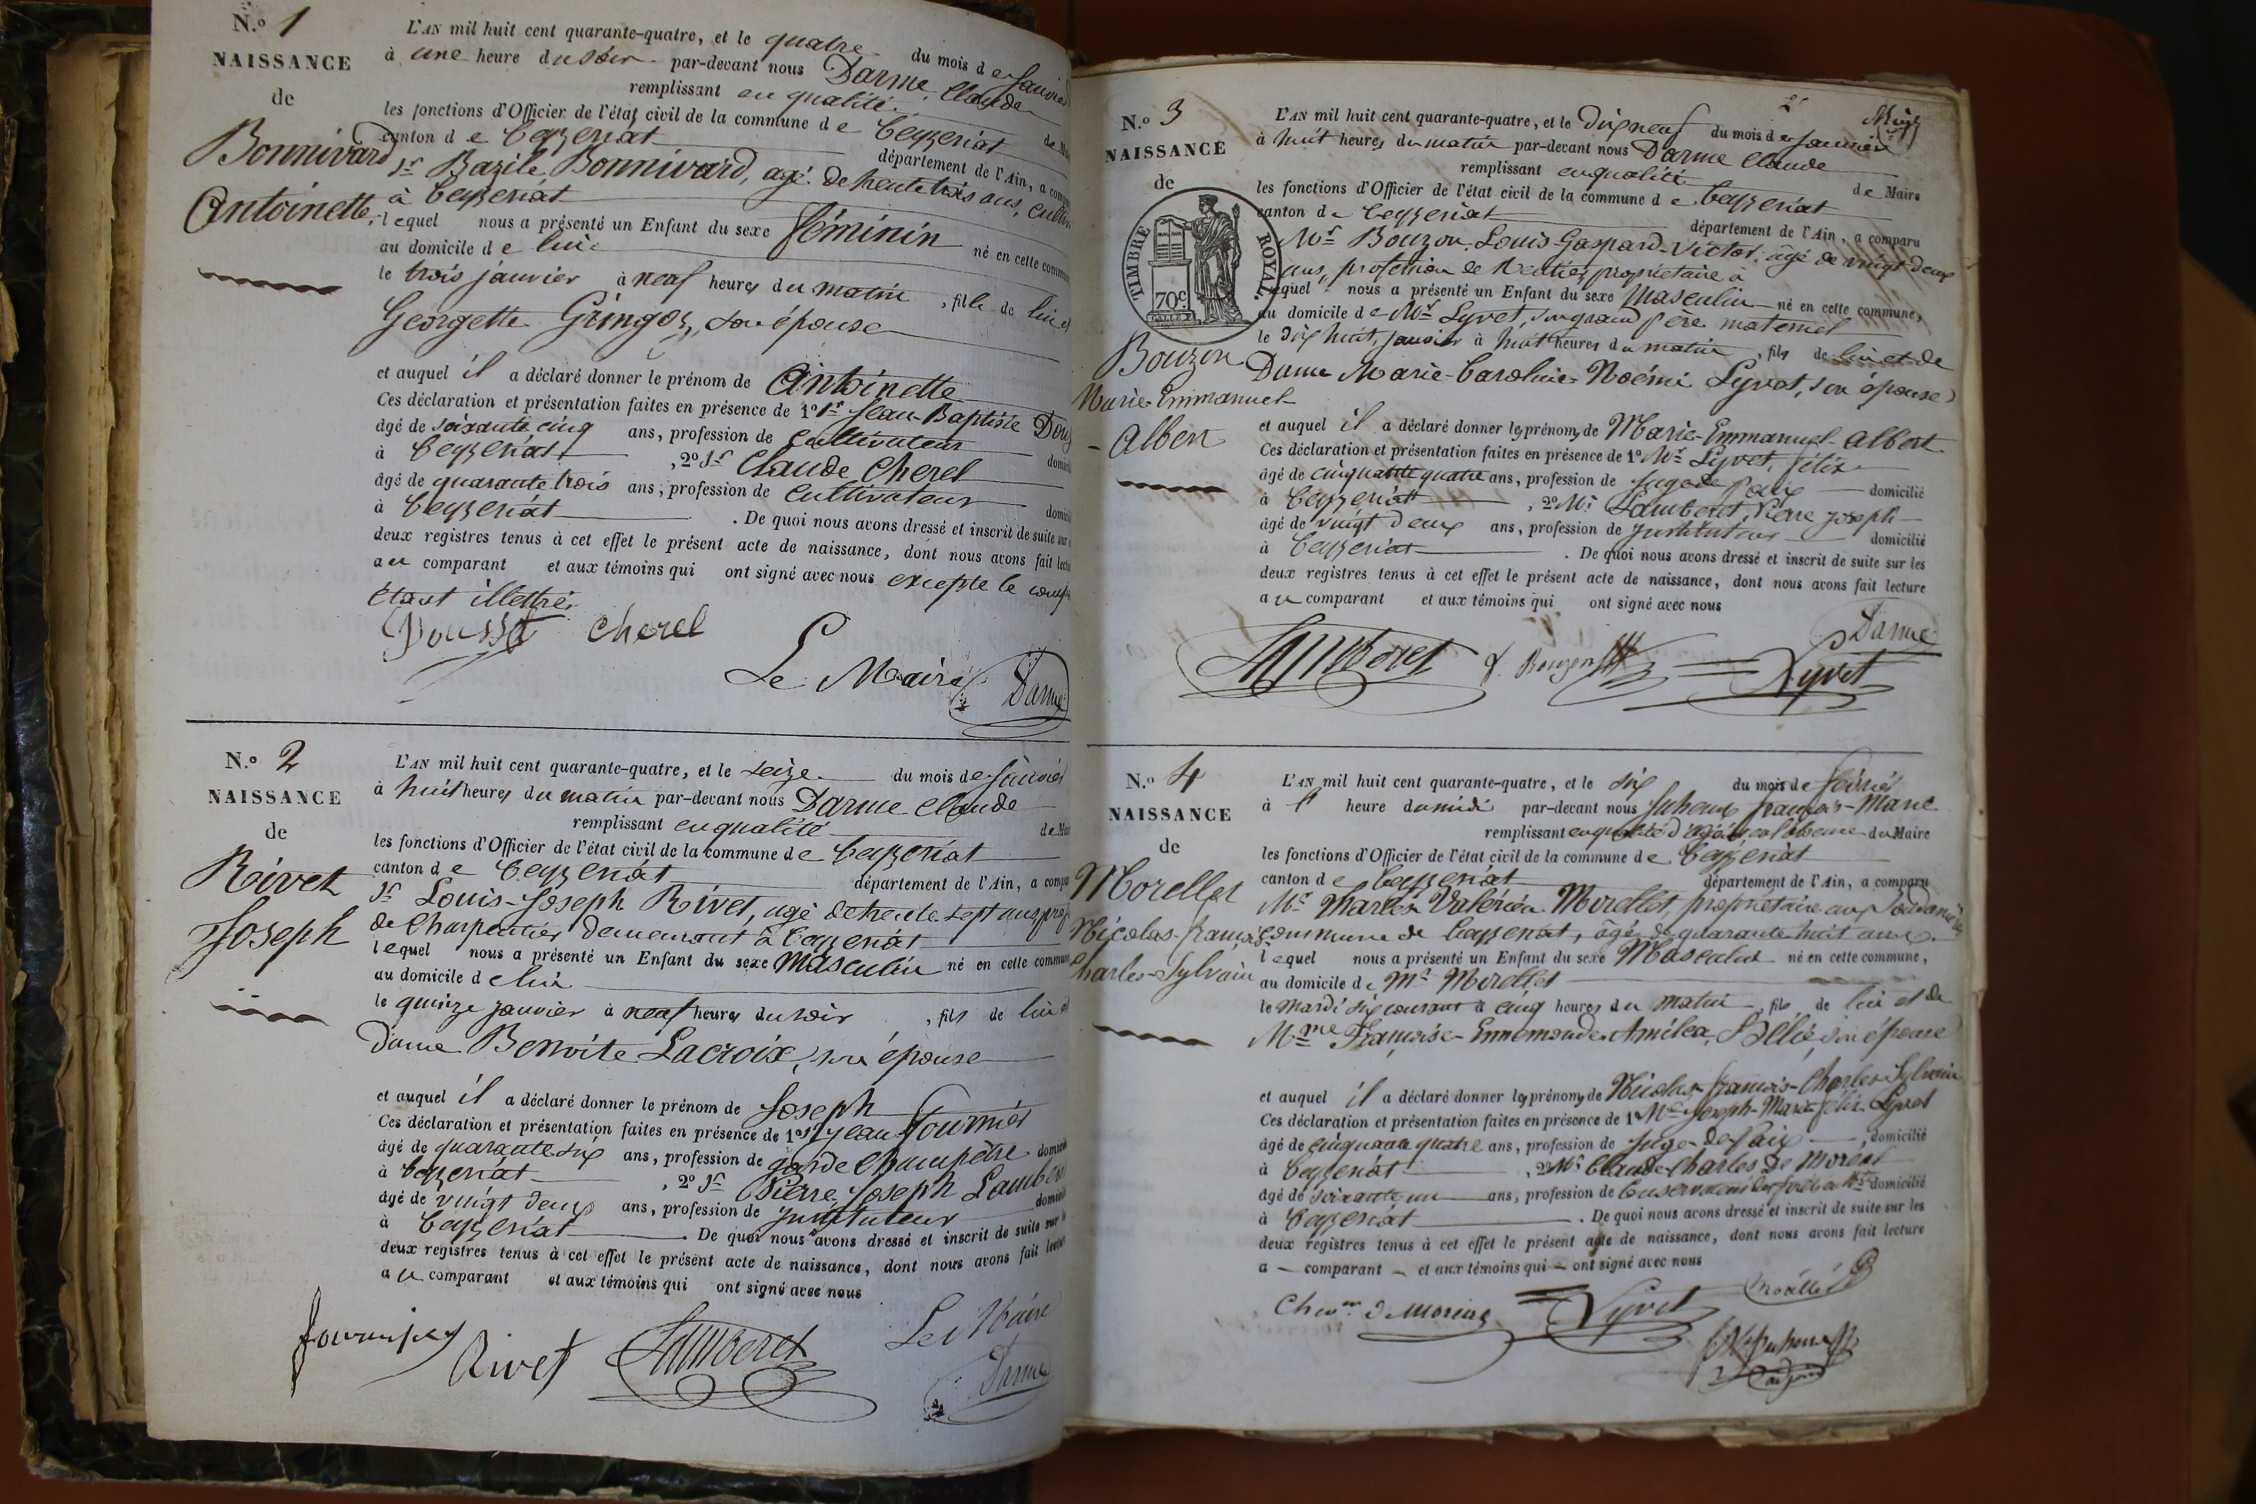 N.º 1
NAISSANCE
de
Bonnivard
Antoinette
L'AN mil huit cent quarante-quatre, et le quatre du mois de Janvier
à une heure du soir par-devant nous Darme Claude
remplissant en qualité de
les fonctions d'Officier de l'état civil de la commune de Ceyzeriat
canton de Ceyzeriat département de l'Ain, a
Sr Bazile Bonnivard, agé de trente trois ans,
à Ceyzeriat
lequel nous a présenté un Enfant du sexe féminin né en cette
au domicile de lui
le trois janvier à neuf heures du matin, fille de lui et
Georgette Gringoz, son épouse
et auquel il a déclaré donner le prénom de Antoinette
Ces déclaration et présentation faites en présence de 1º Sr Jean-Baptiste
âgé de soixante cinq ans, profession de Cultivateur
à Ceyzeriat, 2º Sr Claude Cherel
âgé de quarante trois ans, profession de Cultivateur
à Ceyzeriat. De quoi nous avons dressé et inscrit de suite sur
deux registres tenus à cet effet le présent acte de naissance, dont nous avons fait
au comparant et aux témoins qui ont signé avec nous excepté le
étant illettré
Cherel
Le Maire Darme
N.º 2
NAISSANCE
de
Rivet
Joseph
L'AN mil huit cent quarante-quatre, et le seize du mois de Janvier
à huit heures du matin par-devant nous Darme Claude
remplissant en qualité de
les fonctions d'Officier de l'état civil de la commune de Ceyzeriat
canton de Ceyzeriat département de l'Ain, a
Sr Louis-Joseph Rivet, agé de trente sept ans
de Charpentier demeurant à Ceyzeriat
lequel nous a présenté un Enfant du sexe Masculin né en cette
au domicile de lui
le quinze janvier à neuf heures du soir, fils de lui et
Dame Benoite Lacroix, son épouse
et auquel il a déclaré donner le prénom de Joseph
Ces déclaration et présentation faites en présence de 1º Sr Jean Fournier
âgé de quarante six ans, profession de garde Champêtre
à Ceyzeriat, 2º Sr Pierre Joseph Lamberet
âgé de vingt deux ans, profession de Instituteur
à Ceyzeriat. De quoi nous avons dressé et inscrit de suite sur
deux registres tenus à cet effet le présent acte de naissance, dont nous avons fait
au comparant et aux témoins qui ont signé avec nous
Rivet Lamberet Le Maire
Darme
N.º 3
NAISSANCE
de
TIMBRE ROYAL.
70c
Bouzon
Marie-Emmanuel
-Albert
L'AN mil huit cent quarante-quatre, et le dix neuf du mois de Janvier
à huit heures du matin par-devant nous Darme Claude
remplissant en qualité de Maire
les fonctions d'Officier de l'état civil de la commune de Ceyzeriat
canton de Ceyzeriat département de l'Ain, a comparu
Mr Bouzon, Louis-Gaspard-Victor, âgé de vingt-deux
ans, profession de Rentier, propriétaire à
lequel nous a présenté un Enfant du sexe Masculin né en cette commune,
au domicile de Mr Lyvet, son grand père maternel
le dix huit, janvier à huit heures du matin, fils de lui et de
Dame Marie-Caroline-Noémi Lyvet, son épouse
et auquel il a déclaré donner les prénoms de Marie-Emmanuel-Albert
Ces déclaration et présentation faites en présence de 1º Mr Lyvet, félix
âgé de cinquante quatre ans, profession de Juge de Paix domicilié
à Ceyzeriat, 2º Mr Lamberet, Pierre Joseph
âgé de vingt deux ans, profession de Instituteur domicilié
à Ceyzeriat. De quoi nous avons dressé et inscrit de suite sur les
deux registres tenus à cet effet le présent acte de naissance, dont nous avons fait lecture
au comparant et aux témoins qui ont signé avec nous
Darme
Lamberet Bouzon Lyvet
N.º 4
NAISSANCE
de
Morellet
Nicolas-françois-
Charles-Sylvain
L'AN mil huit cent quarante-quatre, et le six du mois de février
à 1 heure du midi par-devant nous françois-Marie
remplissant en qualité d'adjoint en l'absence du Maire
les fonctions d'Officier de l'état civil de la commune de Ceyzeriat
canton de Ceyzeriat département de l'Ain, a comparu
Mr Charles Valérien Morellet, propriétaire aux
commune de Ceyzeriat, âgé de quarante huit ans
lequel nous a présenté un Enfant du sexe Masculin né en cette commune,
au domicile de Mr Morellet
le mardi six courant à cinq heures du matin, fils de lui et de
Mme Françoise-Ennemonde-Amélea, son épouse
et auquel il a déclaré donner les prénoms de Nicolas-françois-Charles-Sylvain
Ces déclaration et présentation faites en présence de 1º Mr Joseph-Marie-félix Lyvet
âgé de cinquante quatre ans, profession de Juge-de-Paix, domicilié
à Ceyzeriat, 2º Mr Claude-Charles De Moréal
âgé de soixante un ans, profession de domicilié
à Ceyzeriat. De quoi nous avons dressé et inscrit de suite sur les
deux registres tenus à cet effet le présent acte de naissance, dont nous avons fait lecture
a comparant et aux témoins qui ont signé avec nous
Lyvet
adjoint